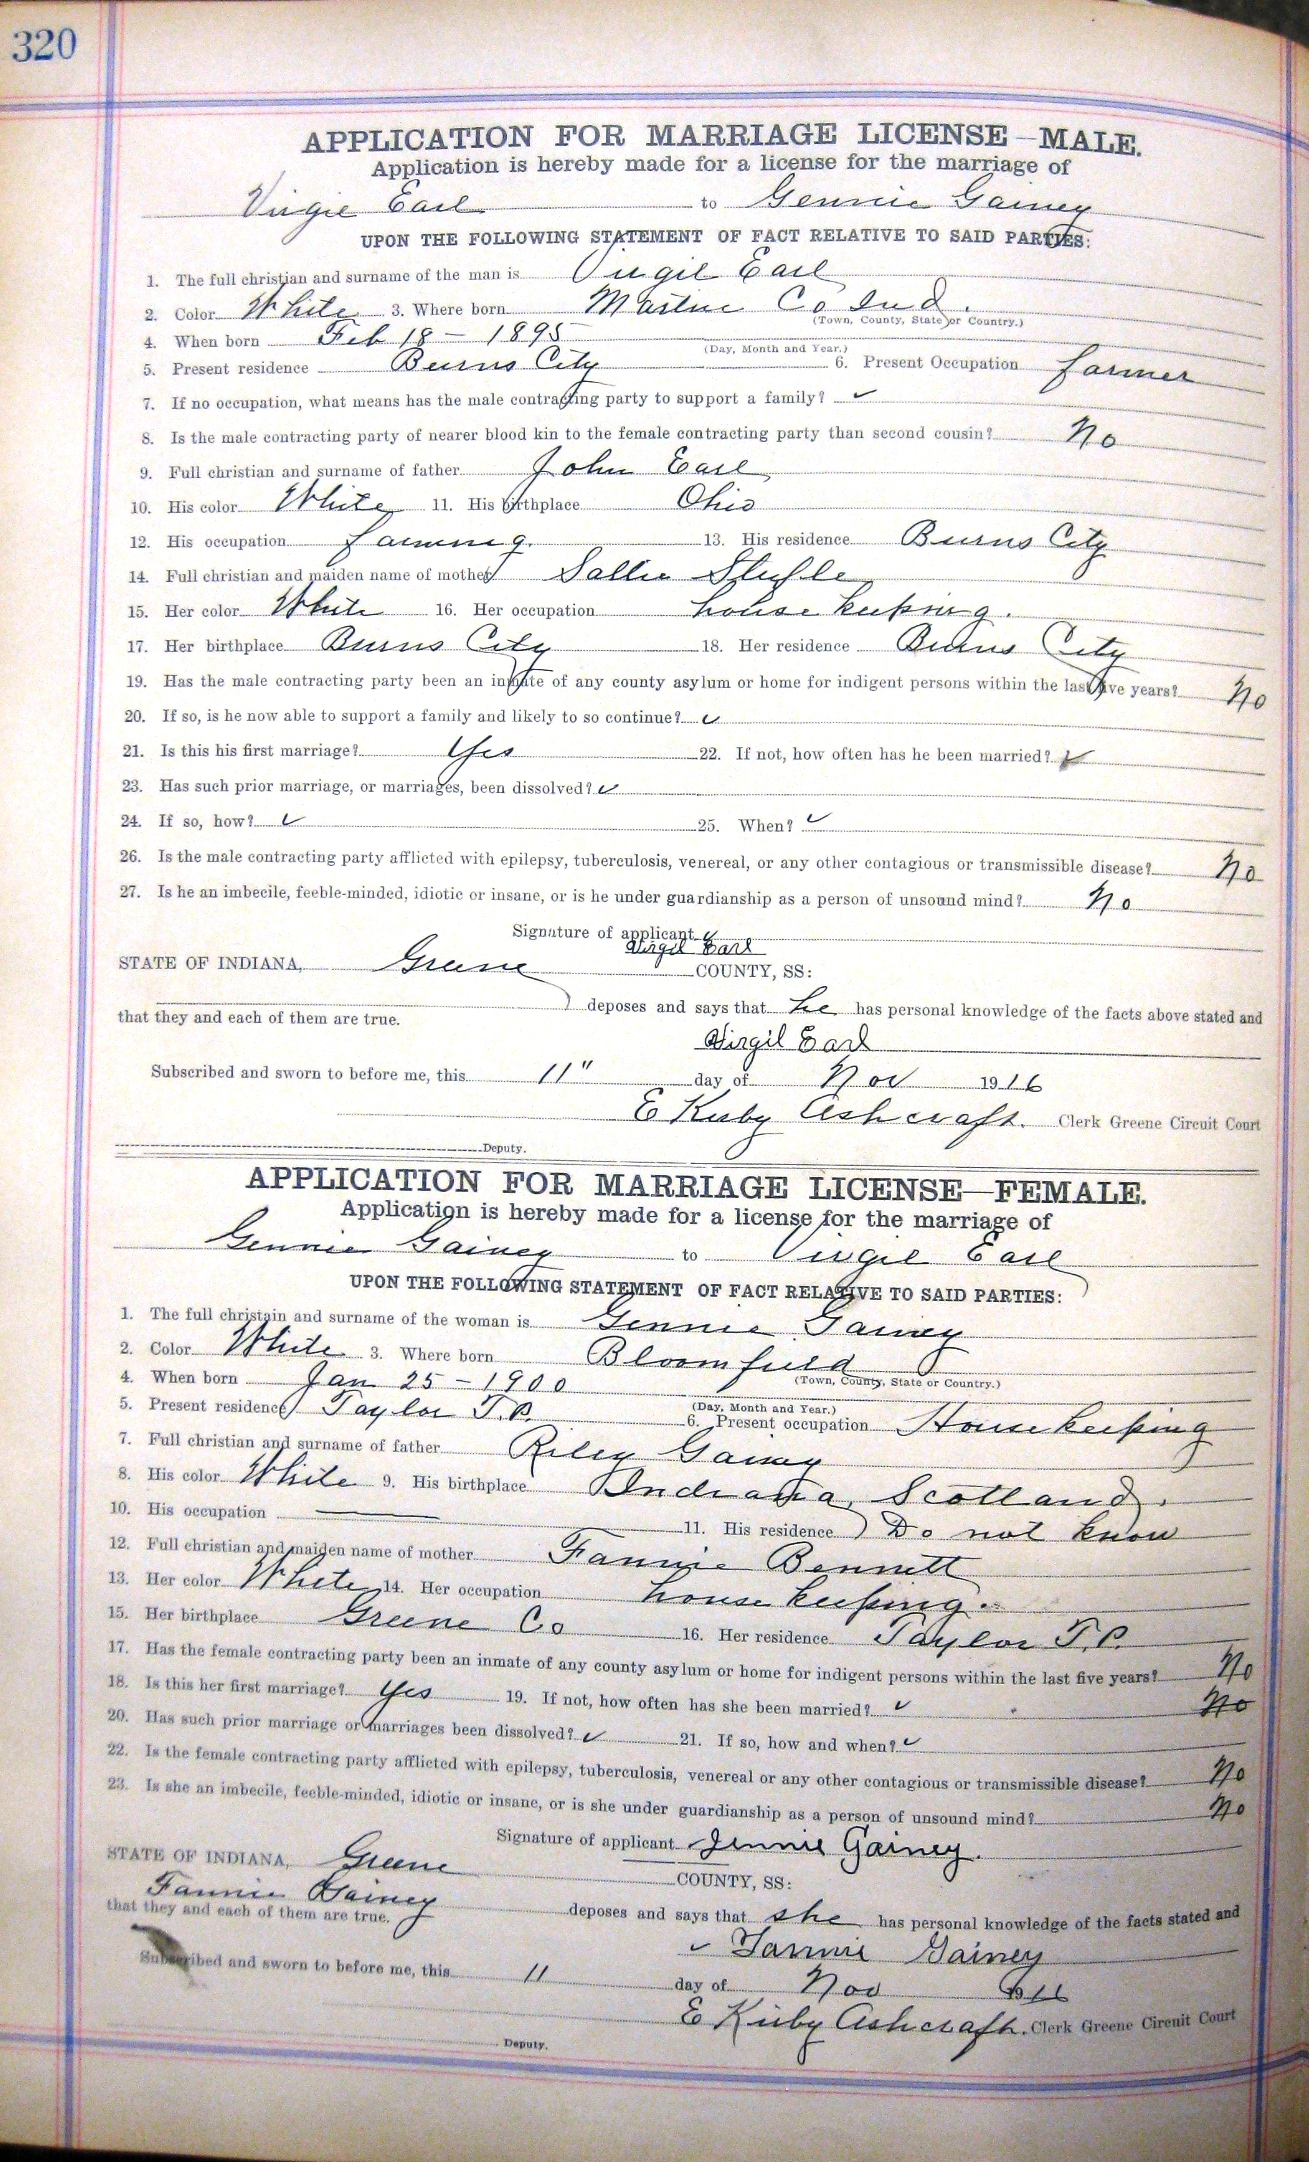 320
APPLICATION FOR MARRIAGE LICENSE—MALE.
Application is hereby made for a license for the marriage of
Virgie Earl to Gennie Gainey
UPON THE FOLLOWING STATEMENT OF FACT RELATIVE TO SAID PARTIES:
1. The full christian and surname of the man is Virgil Earl
2. Color White 3. Where born Martin Co Ind.
(Town, County, State or Country.)
4. When born Feb 18 - 1895
(Day, Month and Year.)
5. Present residence Burns City 6. Present Occupation farmer
7. If no occupation, what means has the male contracting party to support a family? ✓
8. Is the male contracting party of nearer blood kin to the female contracting party than second cousin? No
9. Full christian and surname of father John Earl
10. His color White 11. His birthplace Ohio
12. His occupation farming. 13. His residence Burns City
14. Full christian and maiden name of mother Sallie
15. Her color White 16. Her occupation house keeping.
17. Her birthplace Burns City 18. Her residence Burns City
19. Has the male contracting party been an inmate of any county asylum or home for indigent persons within the last five years? No
20. If so, is he now able to support a family and likely to so continue? ✓
21. Is this his first marriage? Yes 22. If not, how often has he been married? ✓
23. Has such prior marriage, or marriages, been dissolved? ✓
24. If so, how? ✓ 25. When? ✓
26. Is the male contracting party afflicted with epilepsy, tuberculosis, venereal, or any other contagious or transmissible disease? No
27. Is he an imbecile, feeble-minded, idiotic or insane, or is he under guardianship as a person of unsound mind? No
Signature of applicant ✓
Virgil Earl
STATE OF INDIANA, Greene COUNTY, SS:
deposes and says that he has personal knowledge of the facts above stated and
that they and each of them are true.
Virgil Earl
Subscribed and sworn to before me, this 11" day of Nov 1916
E Kirby Ashcraft. Clerk Greene Circuit Court
Deputy.
APPLICATION FOR MARRIAGE LICENSE—FEMALE.
Application is hereby made for a license for the marriage of
Gennie Gainey to Virgil Earl
UPON THE FOLLOWING STATEMENT OF FACT RELATIVE TO SAID PARTIES:
1. The full christain and surname of the woman is Gennie Gainey
2. Color White 3. Where born Bloomfield
(Town, County, State or Country.)
4. When born Jan 25 - 1900
(Day, Month and Year.)
5. Present residence Taylor T.P. 6. Present occupation House keeping
7. Full christian and surname of father Riley Gainey
8. His color White 9. His birthplace Indiana, Scotland.
10. His occupation — 11. His residence Do not know
12. Full christian and maiden name of mother Fannie Bennett
13. Her color White 14. Her occupation house keeping.
15. Her birthplace Greene Co 16. Her residence Taylor T.P.
17. Has the female contracting party been an inmate of any county asylum or home for indigent persons within the last five years? No
18. Is this her first marriage? Yes 19. If not, how often has she been married? ✓ No
20. Has such prior marriage or marriages been dissolved? ✓ 21. If so, how and when? ✓
22. Is the female contracting party afflicted with epilepsy, tuberculosis, venereal or any other contagious or transmissible disease? No
23. Is she an imbecile, feeble-minded, idiotic or insane, or is she under guardianship as a person of unsound mind? No
Signature of applicant Jennie Gainey.
STATE OF INDIANA, Greene COUNTY, SS:
Fannie Gainey deposes and says that she has personal knowledge of the facts stated and
that they and each of them are true.
✓ Fannie Gainey
Subscribed and sworn to before me, this 11 day of Nov 1916
E Kirby Ashcraft. Clerk Greene Circuit Court
Deputy.